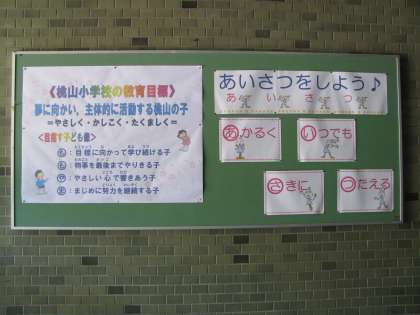 《桃山小学校の教育目標》
夢に向かい、主体的に活動する桃山の子
＝やさしく・かしこく・たくましく＝
＜目指す子ども像＞
も：目標に向かって学び続ける子
も：物事を最後までやりきる子
や：やさしい心で響きあう子
ま：まじめに努力を継続する子
あいさつをしよう♪
あ い さ つ
あかるく
いつでも
さきに
つたえる